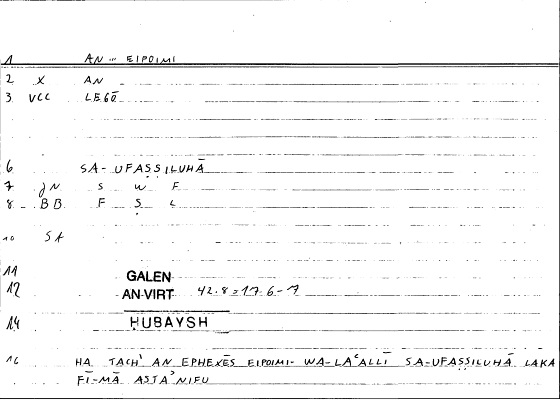 1 AN ... EIPOIMI
2 X AN
3 VCC LEGŌ
6 SA-UFAṢṢILUHĀ
7 JN Ṣ W F
8 BB F Ṣ L
10 SA
11 GALEN
12 AN.VIRT 42.8=17.6-7
14 ḤUBAYSH
16 HA TACH' AN EPHEXĒS EIPOIMI- WA-LAʿALLĪ SA-UFAṢṢILUHĀ LAKA
FĪ-MĀ ASTAʾNIFU